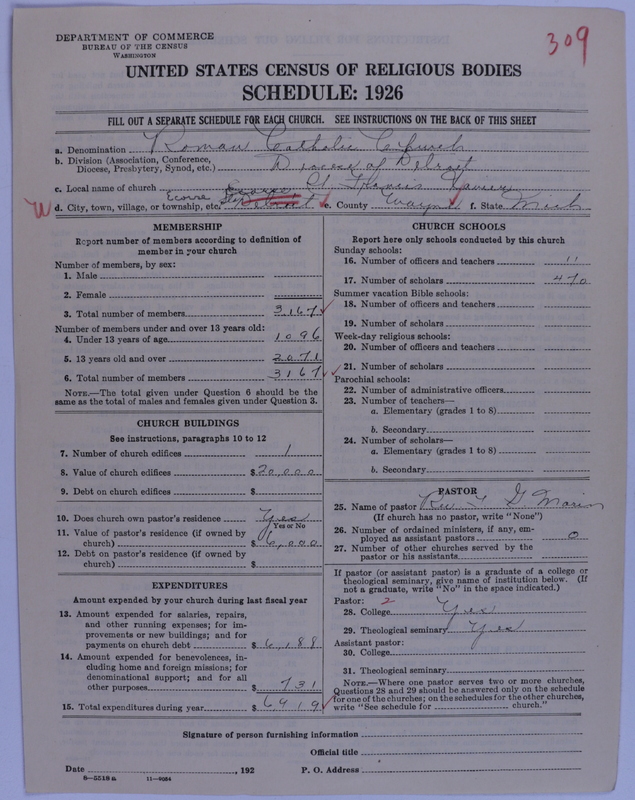 DEPARTMENT OF COMMERCE
BUREAU OF THE CENSUS
WASHINGTON
309
UNITED STATES CENSUS OF RELIGIOUS BODIES
SCHEDULE: 1926
FILL OUT A SEPARATE SCHEDULE FOR EACH CHURCH. SEE INSTRUCTIONS ON THE BACK OF THIS SHEET
a. Denomination Roman Catholic Church
b. Division (Association, Conference,
Diocese, Presbytery, Synod, etc.) Diocese of Detroit
c. Local name of church St Francis Xavier
W d. City, town, village, or township, etc. Ecorse Detroit e. County Wayne f. State Mich
MEMBERSHIP
Report number of members according to definition of
member in your church
Number of members, by sex:
1. Male
2. Female
3. Total number of members 3167
Number of members under and over 13 years old:
4. Under 13 years of age 1096
5. 13 years old and over 2071
6. Total number of members 3167
NOTE.—The total given under Question 6 should be
same as the total of males and females given under Question 3.
CHURCH BUILDINGS
See instructions, paragraphs 10 to 12
7. Number of church edifices 1
8. Value of church edifices $20,000
9. Debt on church edifices $
10. Does church own pastor's residence Yes
Yes or No
11. Value of pastor's residence (if owned by
church) $ 6,000
12. Debt on pastor's residence (if owned by
church) $
EXPENDITURES
Amount expended by your church during last fiscal year
13. Amount expended for salaries, repairs,
and other running expenses; for im-
provements or new buildings; and for
payments on church debt $ 6,188
14. Amount expended for benevolences, in-
cluding home and foreign missions; for
denominational support; and for all
other purposes $ 731
15. Total expenditures during year $ 6919
CHURCH SCHOOLS
Report here only schools conducted by this church
Sunday schools:
16. Number of officers and teachers 11
17. Number of scholars 470
Summer vacation Bible schools:
18. Number of officers and teachers
19. Number of scholars
Week-day religious schools:
20. Number of officers and teachers
21. Number of scholars
Parochial schools:
22. Number of administrative officers
23. Number of teachers—
a. Elementary (grades 1 to 8)
b. Secondary
24. Number of scholars—
a. Elementary (grades 1 to 8)
b. Secondary
PASTOR
25. Name of pastor Rev G
(If church has no pastor, write "None")
26. Number of ordained ministers, if any, em-
ployed as assistant pastors 0
27. Number of other churches served by the
pastor or his assistants
If pastor (or assistant pastor) is a graduate of a college or
theological seminary, give name of institution below. (If
not a graduate, write "No" in the space indicated.)
Pastor: 2
28. College Yes
29. Theological seminary Yes
Assistant pastor:
30. College
31. Theological seminary
NOTE.—Where one pastor serves two or more churches,
Questions 28 and 29 should be answered only on the schedule
for one of the churches; on the schedules for the other churches,
write "See schedule for church."
Signature of person furnishing information
Official title
Date , 192 P. O. Address
8—5518a 11—9064